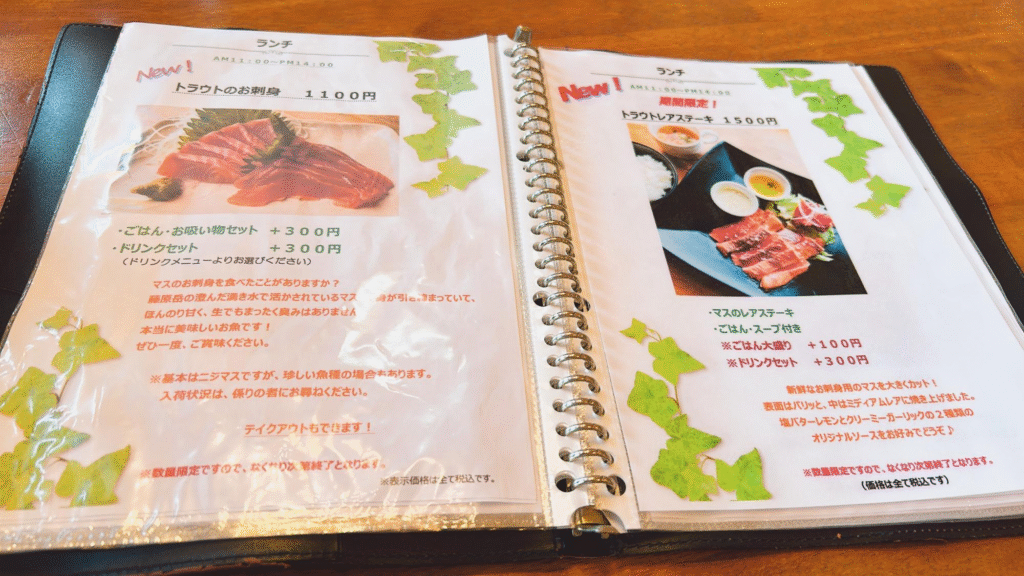 ランチ
AM11:00～PM14:00
New!
トラウトのお刺身 1100円
・ごはん・お吸い物セット +300円
・ドリンクセット +300円
(ドリンクメニューよりお選びください)
マスのお刺身を食べたことがありますか?
藤原岳の澄んだ湧き水で活かされているマス 身が引き締まっていて、
ほんのり甘く、生でもまったく臭みはありません
本当に美味しいお魚です!
ぜひ一度、ご賞味ください。
※基本はニジマスですが、珍しい魚種の場合もあります。
入荷状況は、係りの者にお尋ねください。
テイクアウトもできます!
※数量限定ですので、なくなり次第終了となります。
※表示価格は全て税込です。
ランチ
AM11:00～PM14:00
New!
期間限定!
トラウトレアステーキ 1500円
・マスのレアステーキ
・ごはん・スープ付き
※ごはん大盛り +100円
※ドリンクセット +300円
新鮮なお刺身用のマスを大きくカット!
表面はパリッと、中はミディアムレアに焼き上げました。
塩バターレモンとクリーミーガーリックの2種類の
オリジナルソースをお好みでどうぞ♪
※数量限定ですので、なくなり次第終了となります。
(価格は全て税込です)